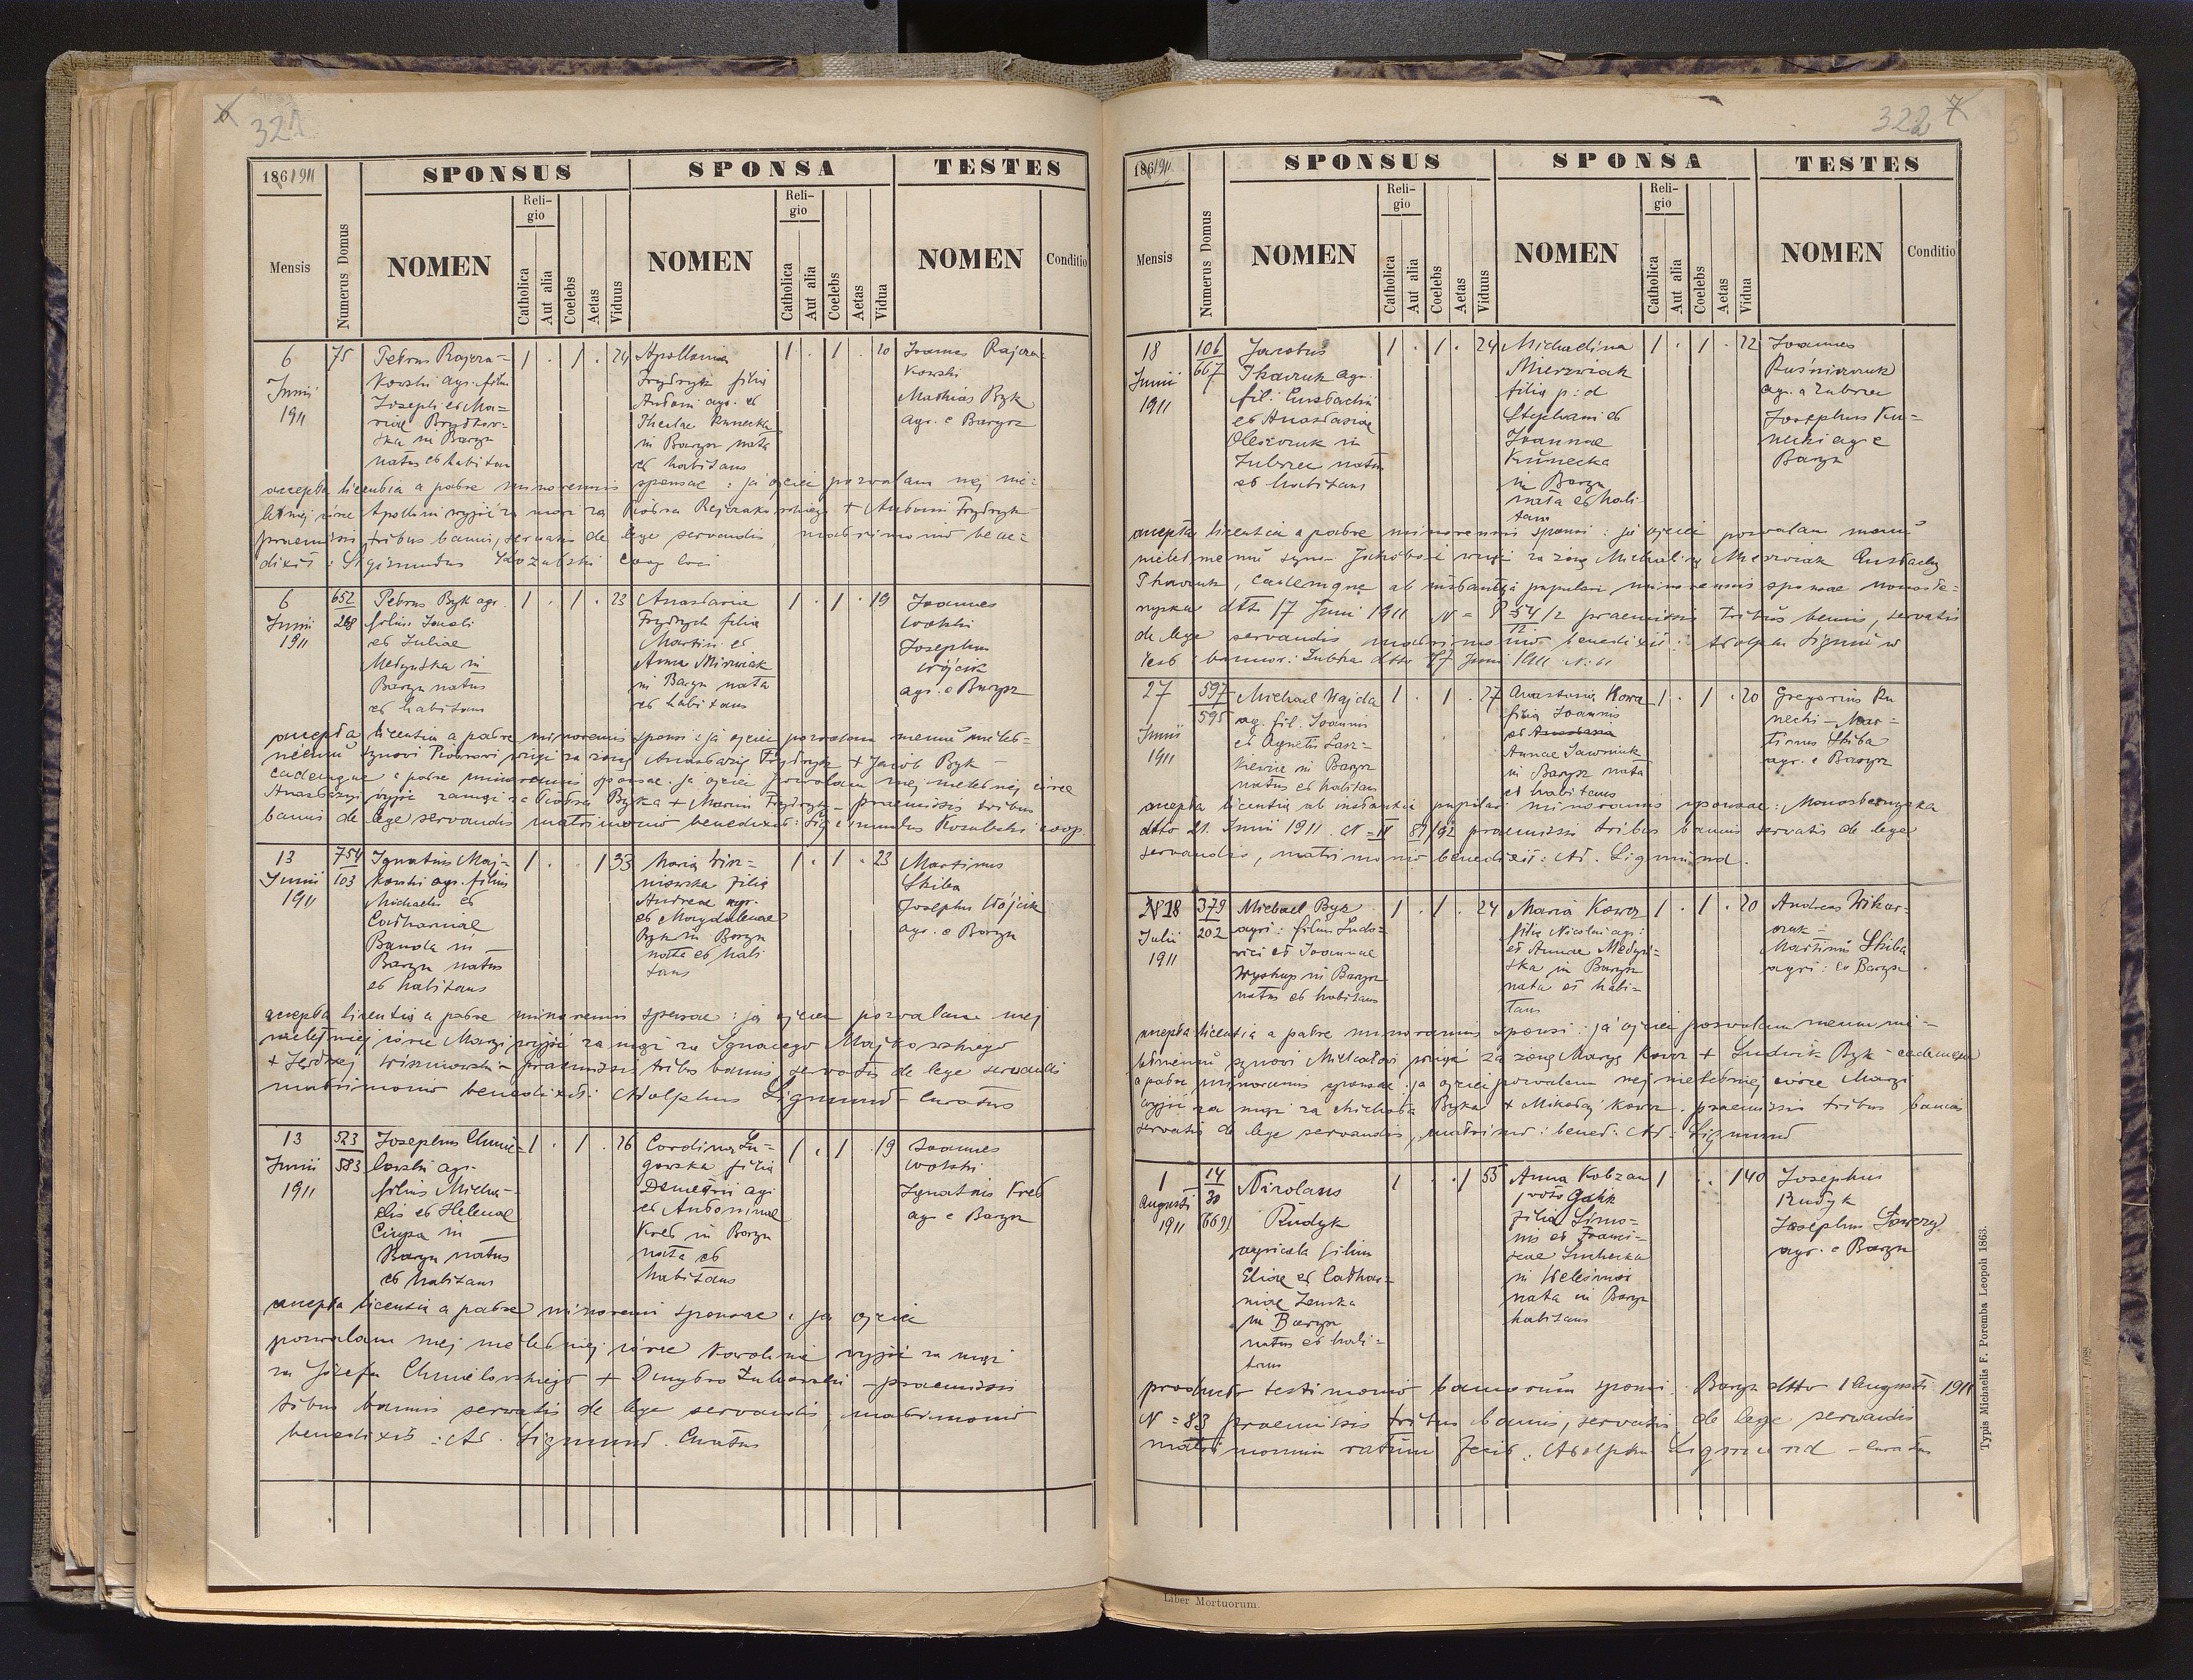 321
1861911
SPONSUS
SPONSA
TESTES
Mensis
Numerus Domus
NOMEN
Religio
Catholica
Aut alia
Coelebs
Aetas
Viduus
NOMEN
Religio
Catholica
Aut alia
Coelebs
Aetas
Vidua
NOMEN
Conditio
6
Junii
1911
75
Petrus Rajcza=
kowski agr. filius
Josephi et Ma=
riae
in Barysz
natus et habitans
1 . 1 . 24
Apollonia
Frydryk filia
Antoni agr. et
Theclae Kunecka
in Barysz nata
et habitans
1 . 1 . 20
Joannes Rajcza=
kowski
Mathias Byk
agr. e Barysz
accepta licentia a patre minorennis sponsae : ja ojciec pozwalam mej nie=
letniej córce Apolonii wyjść za mąż za Piotra Rajczakowskiego + Antoni Frydryk
praemissis tribus bannis, servatis de lege servandis, matrimonio bene=
dixit : Sigismundus Kozubski coop loci
6
Junii
1911
652
268
Petrus Byk agr.
filius Jacobi
et Juliae
Medyńska in
Barysz natus
et habitans
1 . 1 . 23
Anastasia
Frydrych filia
Martini et
Anna Mierzwiak
in Barysz nata
et habitans
1 . 1 . 19
Joannes
Wolski
Josephus
Wójcik
agr. e Barysz
accepta licentia a patre minorennis sponsi : ja ojciec pozwalam memu nielet=
niemu synowi Piotrowi pojąć za żonę Anastazię Frydryk + Jacób Byk —
eademque a patre minorennis sponsae. ja ojciec pozwalam mej nieletniej córce
Anastazyi wyjść zamąż za Piotra Byka + Marcin Frydryk – praemissis tribus
bannis de lege servandis matrimonio benedixit: Sigismundus Kozubski coop.
13
Junii
1911
754
103
Ignatius Maj=
kowski agr. filius
Michaelis et
Catharinae
Banda in
Barysz natus
et habitans
1 . . 1 33
Maria Wisz=
niowska filia
Andreae agr.
et Magdalenae
Byk in Barysz
nata et habi
tans
1 . 1 . 23
Martinus
Skiba
Josephus Wójcik
agr. e Barysz
accepta licentia a patre minorennis sponsae : ja ojciec pozwalam mej
nieletniej córce Maryi wyjść za mąż za Ignacego Majkowskiego
+ Jędrzej Wiszniowski – praemissis tribus bannis servatis de lege servandis
matrimonio benedixit: Adolphus Sigmund – Curatus
13
Junii
1911
523
583
Josephus Chmie=
lowski agr.
filius Micha=
elis et Helenae
Ciupa in
Barysz natus
et habitans
1 . 1 . 26
Carolina Zu=
gowska filia
Demetrii agr
et Antoninae
Kret in Barysz
nata et
habitans
1 . 1 . 19
Joannes
Wolski
Ignatius Kret
agr e Barysz
accepta licentia a patre minorenni sponsae : ja ojciec
pozwalam mej nieletniej córce Karolinie wyjść za mąż
za Józefa Chmielowskiego + Dmytro – praemissis
tribus bannis servatis de lege servandis, matrimonio
benedixit : Ad. Sigmund. Curatus
322 7
1861911
SPONSUS
SPONSA
TESTES
Mensis
Numerus Domus
NOMEN
Religio
Catholica
Aut alia
Coelebs
Aetas
Viduus
NOMEN
Religio
Catholica
Aut alia
Coelebs
Aetas
Vidua
NOMEN
Conditio
18
Junii
1911
106
667
Jacobus
Tkaczuk agr.
fil. Eustachii
et Anastasiae
Oleszczuk in
Zubrzec natus
et habitans
1 . 1 . 24
Michaelina
Mierzwiak
filia p: d
Stephani et
Joannae
Kunecka
in Barysz
nata et habi
tans
1 . 1 . 22
Joannes
Kuśnierczuk
agr. a Zubrzec
Josephus Ku=
necki agr e
Barysz
accepta licentia a patre minorennis sponsi : ja ojciec pozwalam memu
nieletniemu synowi Jakóbowi wziąć za żonę Michalinę Mierzwiak Eustachy
Tkaczuk, eademque ab instantia pupilari minorennis sponsae Monaste=
rzyska dtto 17 Junii 1911 N = P 54/2 praemissis tribus bannis, servatis
12
de lege servandis matrimonio benedixit: Adolphus Sigmund
test: bannor: Zubrzec dtto 17 Junii 1911 N: 11
27
Junii
1911
597
595
Michael Wajda
ag. fil. Joannis
et Agnetis Łasz=
kiewicz in Barysz
natus et habitans
1 . 1 . 27
Anastasia Kowcz
filia Joannis
et Anastasia
Annae Jawrniuk
in Barysz nata
et habitans
1 . 1 . 20
Gregorius Ku
necki – Mar=
tinus Skiba
agr. e Barysz
accepta licentia ab instantia pupilari minorennis sponsae: Monasterzyska
dtto 21. Junii 1911. N = IV 81/92 praemissis tribus bannis servatis de lege
servandis, matrimonio benedixit: Ad. Sigmund.
N 18
Julii
1911
379
202
Michael Byk
agri: filius Ludo=
vici et Joannae
Wyskup in Barysz
natus et habitans
1 . 1 . 24
Maria Kowcz
filia Nicolai agr:
et Annae Medyń=
ska in Barysz
nata et habi=
tans
1 . 1 . 20
Andreas Wikar=
czuk –
Martinus Skiba
agri: e Barysz
accepta licentia a patre minorennis sponsi : ja ojciec pozwalam memu nie=
letniemu synowi Michałowi pojąć za żonę Maryę Kowcz + Ludwik Byk – eademque
a patre minorennis sponsae : ja ojciec pozwalam mej nieletniej córce Maryi
wyjść za mąż za Michała Byka + Mikołaj Kowcz. praemissis tribus bannis
servatis de lege servandis, matrimo: bened: Ad: Sigmund
1
Augusti
1911
14
30
669
Nicolaus
Rudyk
agricola filius
Eliae et Catha=
rinae Zenska
in Barysz
natus et habi=
tans
1 . . 1 55
Anna Kobzan
proto Galik
filia Simo=
nis et Franci=
scae
in Weleśniów
nata in Barysz
habitans
1 . . 1 40
Josephus
Rudyk
Josephus Ławczy
agr. e Barysz
producto testimonio bannorum sponsi. Barysz dtto 1 Augusti 1911
N = 83 praemissis tribus bannis, servatis de lege servandis
matrimonium ratum fecit. Adolphus Sigmund – Curatus
Typis Michaelis F. Poremba Leopoli 1863.
Liber Mortuorum.